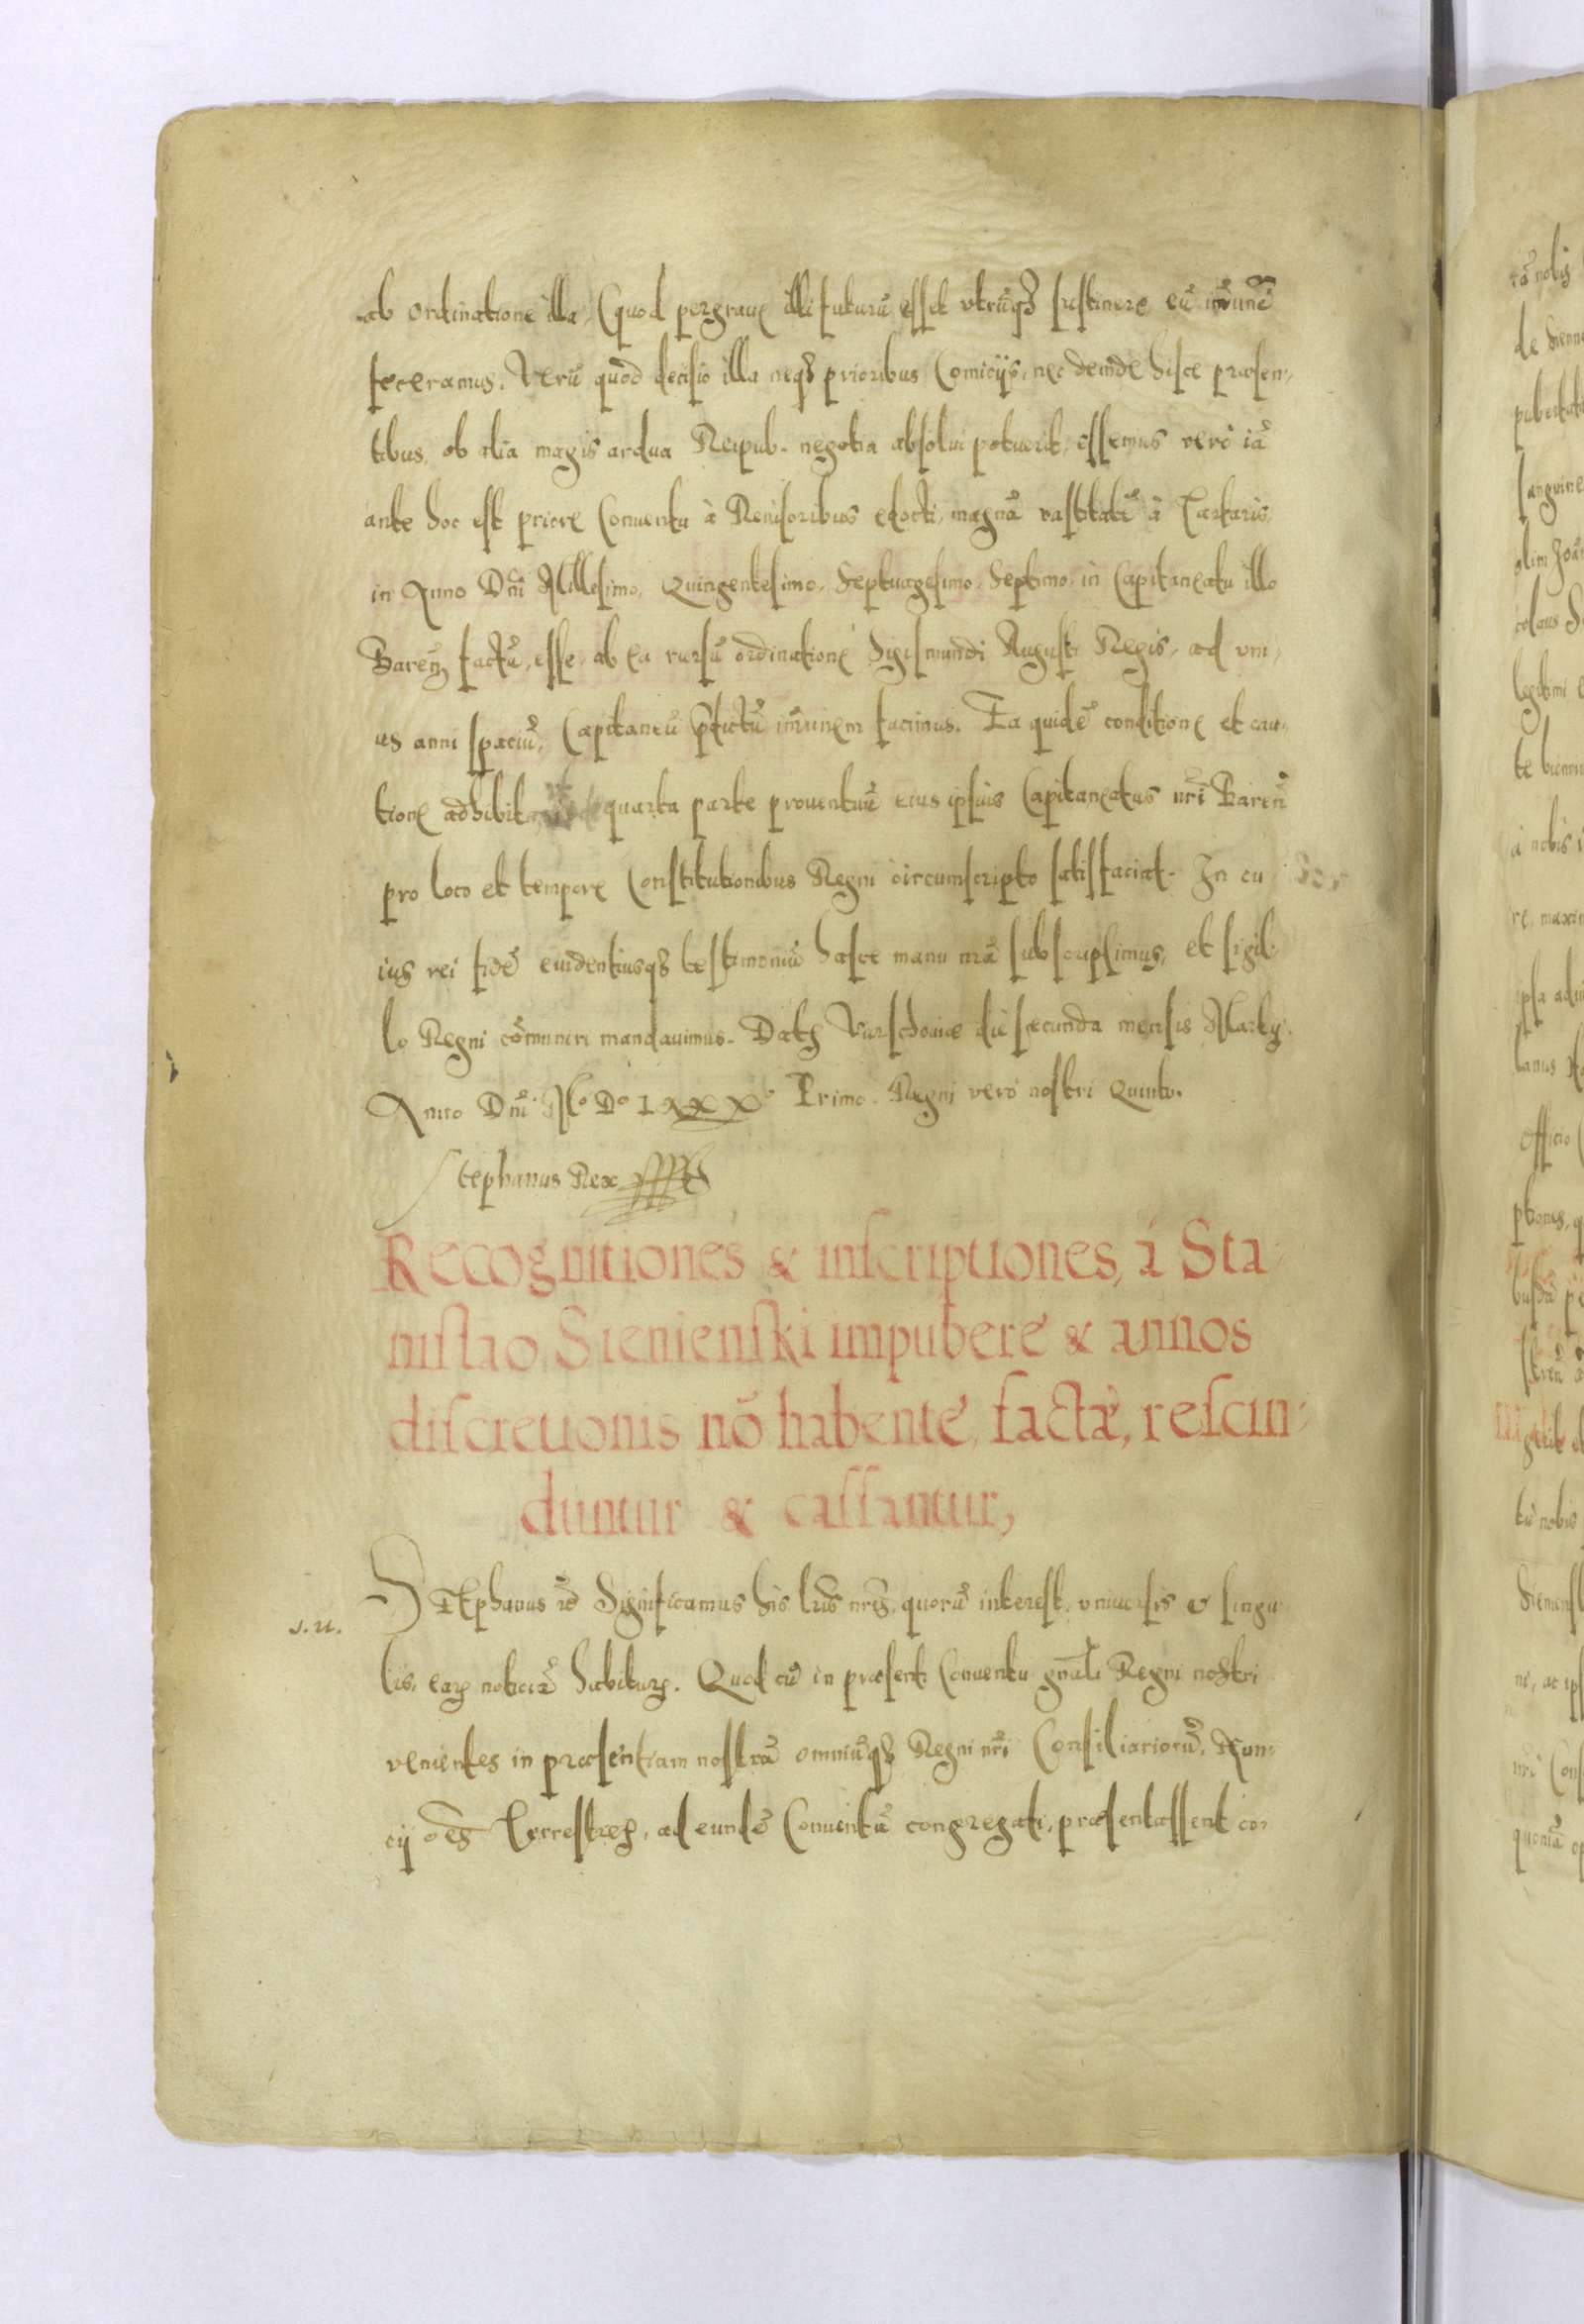 ab ordinatione illa, (quod pergraue illi futurũ esset vtrũqȝ sustinere, eũ imunẽ
feceramus. Verũ quod decisio illa neqȝ prioribus Comicijs, nec demde hisce præsen,
tibus, ob alia magis ardua Reipub. negotia absolui potuerit, essemus vero iã
ante hoc est priore Conuentu à Reuisoribus edocti, magnã vastitatẽ à Tartaris,
in Anno Dñi Millesimo, Quingentesimo, Septuagesimo, Septimo, in Capitaneatu illo
Bareñ factũ, esse, ab ea rursũ ordinatione Sigismundi Augusti Regis, ad vni,
us anni spaciũ, Capitaneũ p̃fictũ im̃unem facimus. Ea quidẽ conditione et cau,
tione adhibit quarta parte prouentuũ eius ipsius Capitaneatus nr̃i Bareñ
pro loco et tempore Constitutionibus Regni circumscripto satisfaciat. In cu
ius rei fidẽ euidentiusqȝ testimoniũ hasce manu nr̃a subscripsimus, et sigil,
lo Regni cõmuniri mandauimus. Datꝭ Varschouiæ die secunda mensis Martij.
Anno Dñi. Mo Do LXXXo Primo. Regni vero nostri Quinto.
Stephanus Rex
Recognitiones & inscriptiones, á Sta,
nislao Sienienski impubere & annos
discretionis nõ habente, factæ, rescin,
duntur & cassantur,
s.u.
Stephanus r̃c Significamus his lr̃is nr̃is, quorũ interest, vniuersis & singu
lis, earꝝ noticiã habiturꝭ. Quod cũ in præsenti Conuentu gnãli Regni nostri
venientes in præsentiam nostrã omniũqȝ Regni nr̃i Consiliariorũ, Nun,
cij oẽs Terrestres, ad eundẽ Conuentũ congregati, præsentassent co,